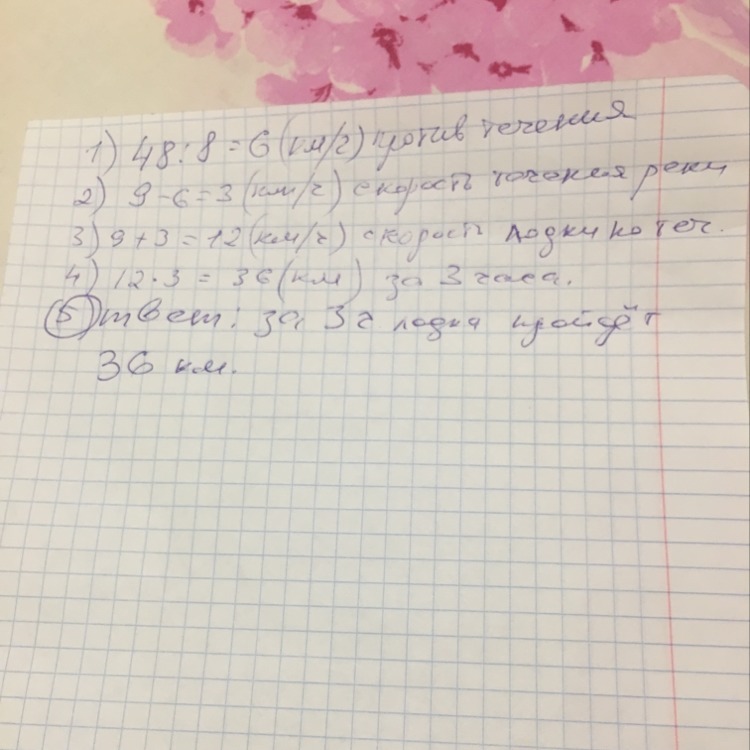 1) 48 : 8 = 6 (км/ч) против течения
2) 9 - 6 = 3 (км/ч) скорость течения реки
3) 9 + 3 = 12 (км/ч) скорость лодки по теч.
4) 12 · 3 = 36 (км) за 3 часа.
Ответ: за 3 ч лодка пройдёт
36 км.